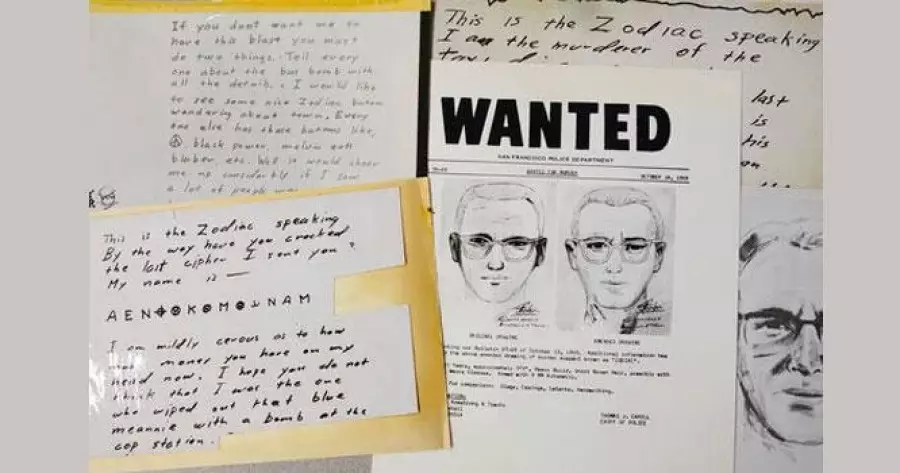 If you dont want me to
have this blast you must
do two things. Tell every
one about the bus bomb with
all the details. I would like
to see some nice Zodiac butons
wandering about town. Every
one else has these buttons like,
☮, black power, melvin eats
bluber, etc. Well it would cheer
me up considerbly if I saw
a lot of people
This is the Zodiac speaking
By the way have you cracked
the last cipher I sent you?
My name is —
AEN⌖⊗K⊗M⊗⅃NAM
I am mildly cerous as to how
much money you have on my
head now. I hope you do not
think that I was the one
who wiped out that blue
meannie with a bomb at the
cop station.
This is the Zodiac speaking
I am the murderer of the
last
is
his
WANTED
SAN FRANCISCO POLICE DEPARTMENT
WANTED FOR MURDER
OCTOBER 18, 1969
ORIGINAL DRAWING
AMENDED DRAWING
THOMAS J. CAHILL
CHIEF OF POLICE